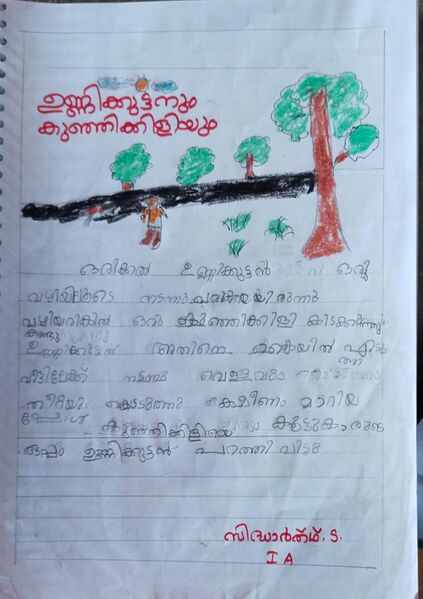 ഉണ്ണിക്കുട്ടനും
കുഞ്ഞിക്കിളിയും
ഒരിക്കൽ ഉണ്ണിക്കുട്ടൻ ഒരു
വഴിയിലൂടെ നടന്നു
വഴിയരികിൽ ഒരു കുഞ്ഞിക്കിളി കിടക്കുന്നു
കണ്ടു
ഉണ്ണിക്കുട്ടൻ അതിനെ കയ്യിൽ എടു
ത്ത്
വീട്ടിലേക്ക് നടന്നു വെള്ളവും
തീറ്റയും കൊടുത്തു ക്ഷീണം മാറിയ
പ്പോൾ കുഞ്ഞിക്കിളിയെ കൂട്ടുകാരുടെ
ഒപ്പം ഉണ്ണിക്കുട്ടൻ പറത്തി വിട്ടു
സിദ്ധാർത്ഥ്. S.
I A